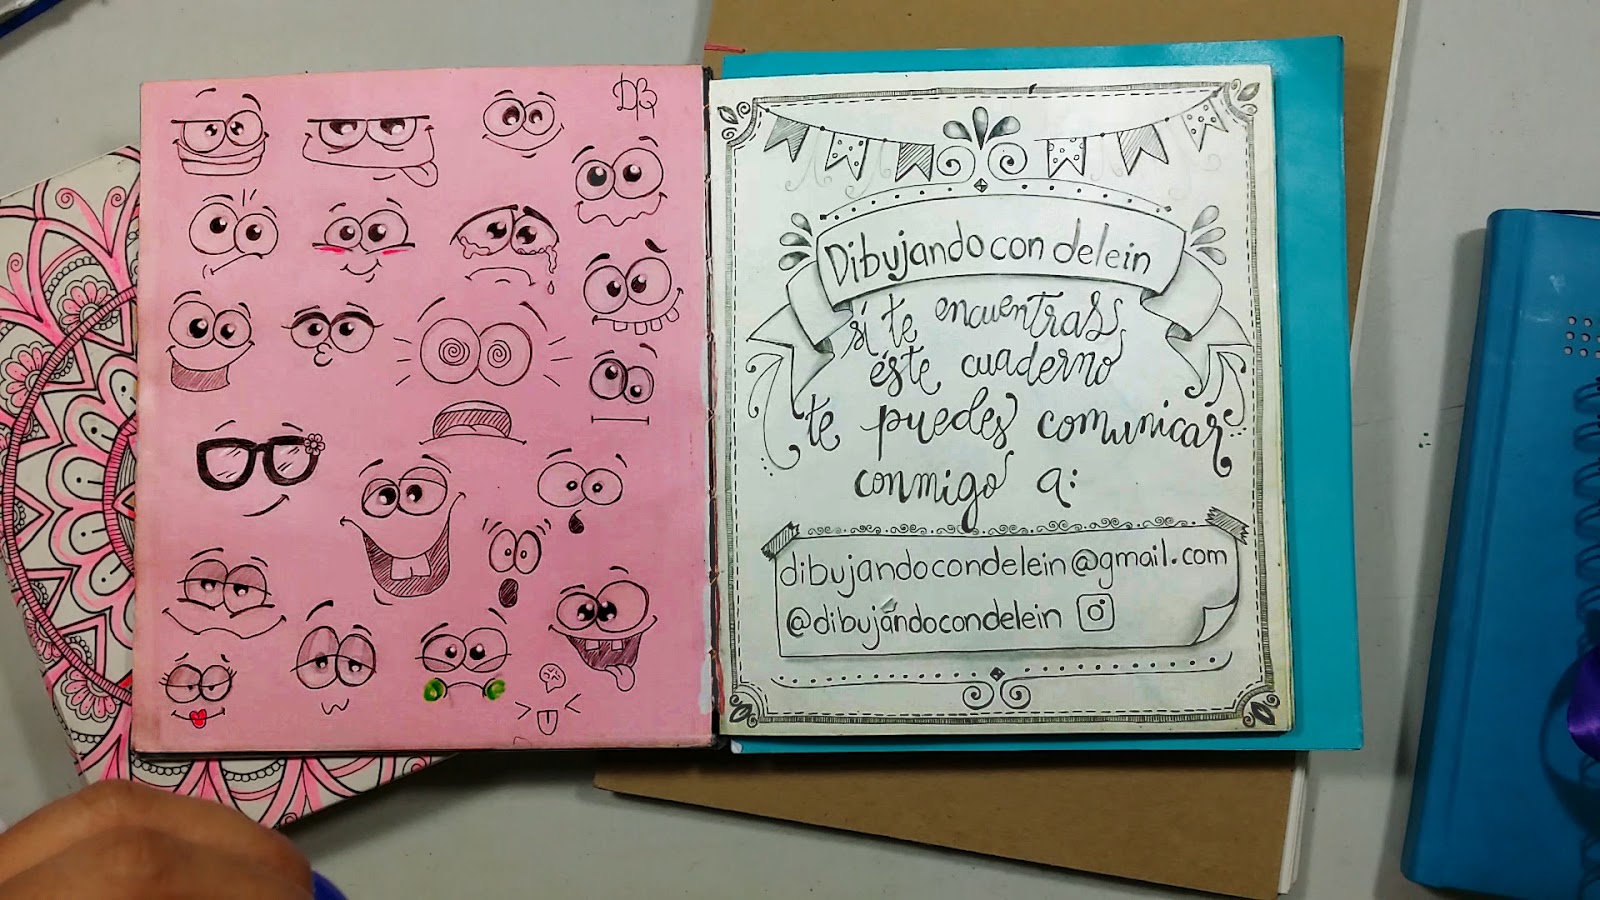 DB
Dibujando con delein
si te encuentras
éste cuaderno
te puedes comunicar
conmigo a:
dibujandocondelein@gmail.com
@dibujándocondelein